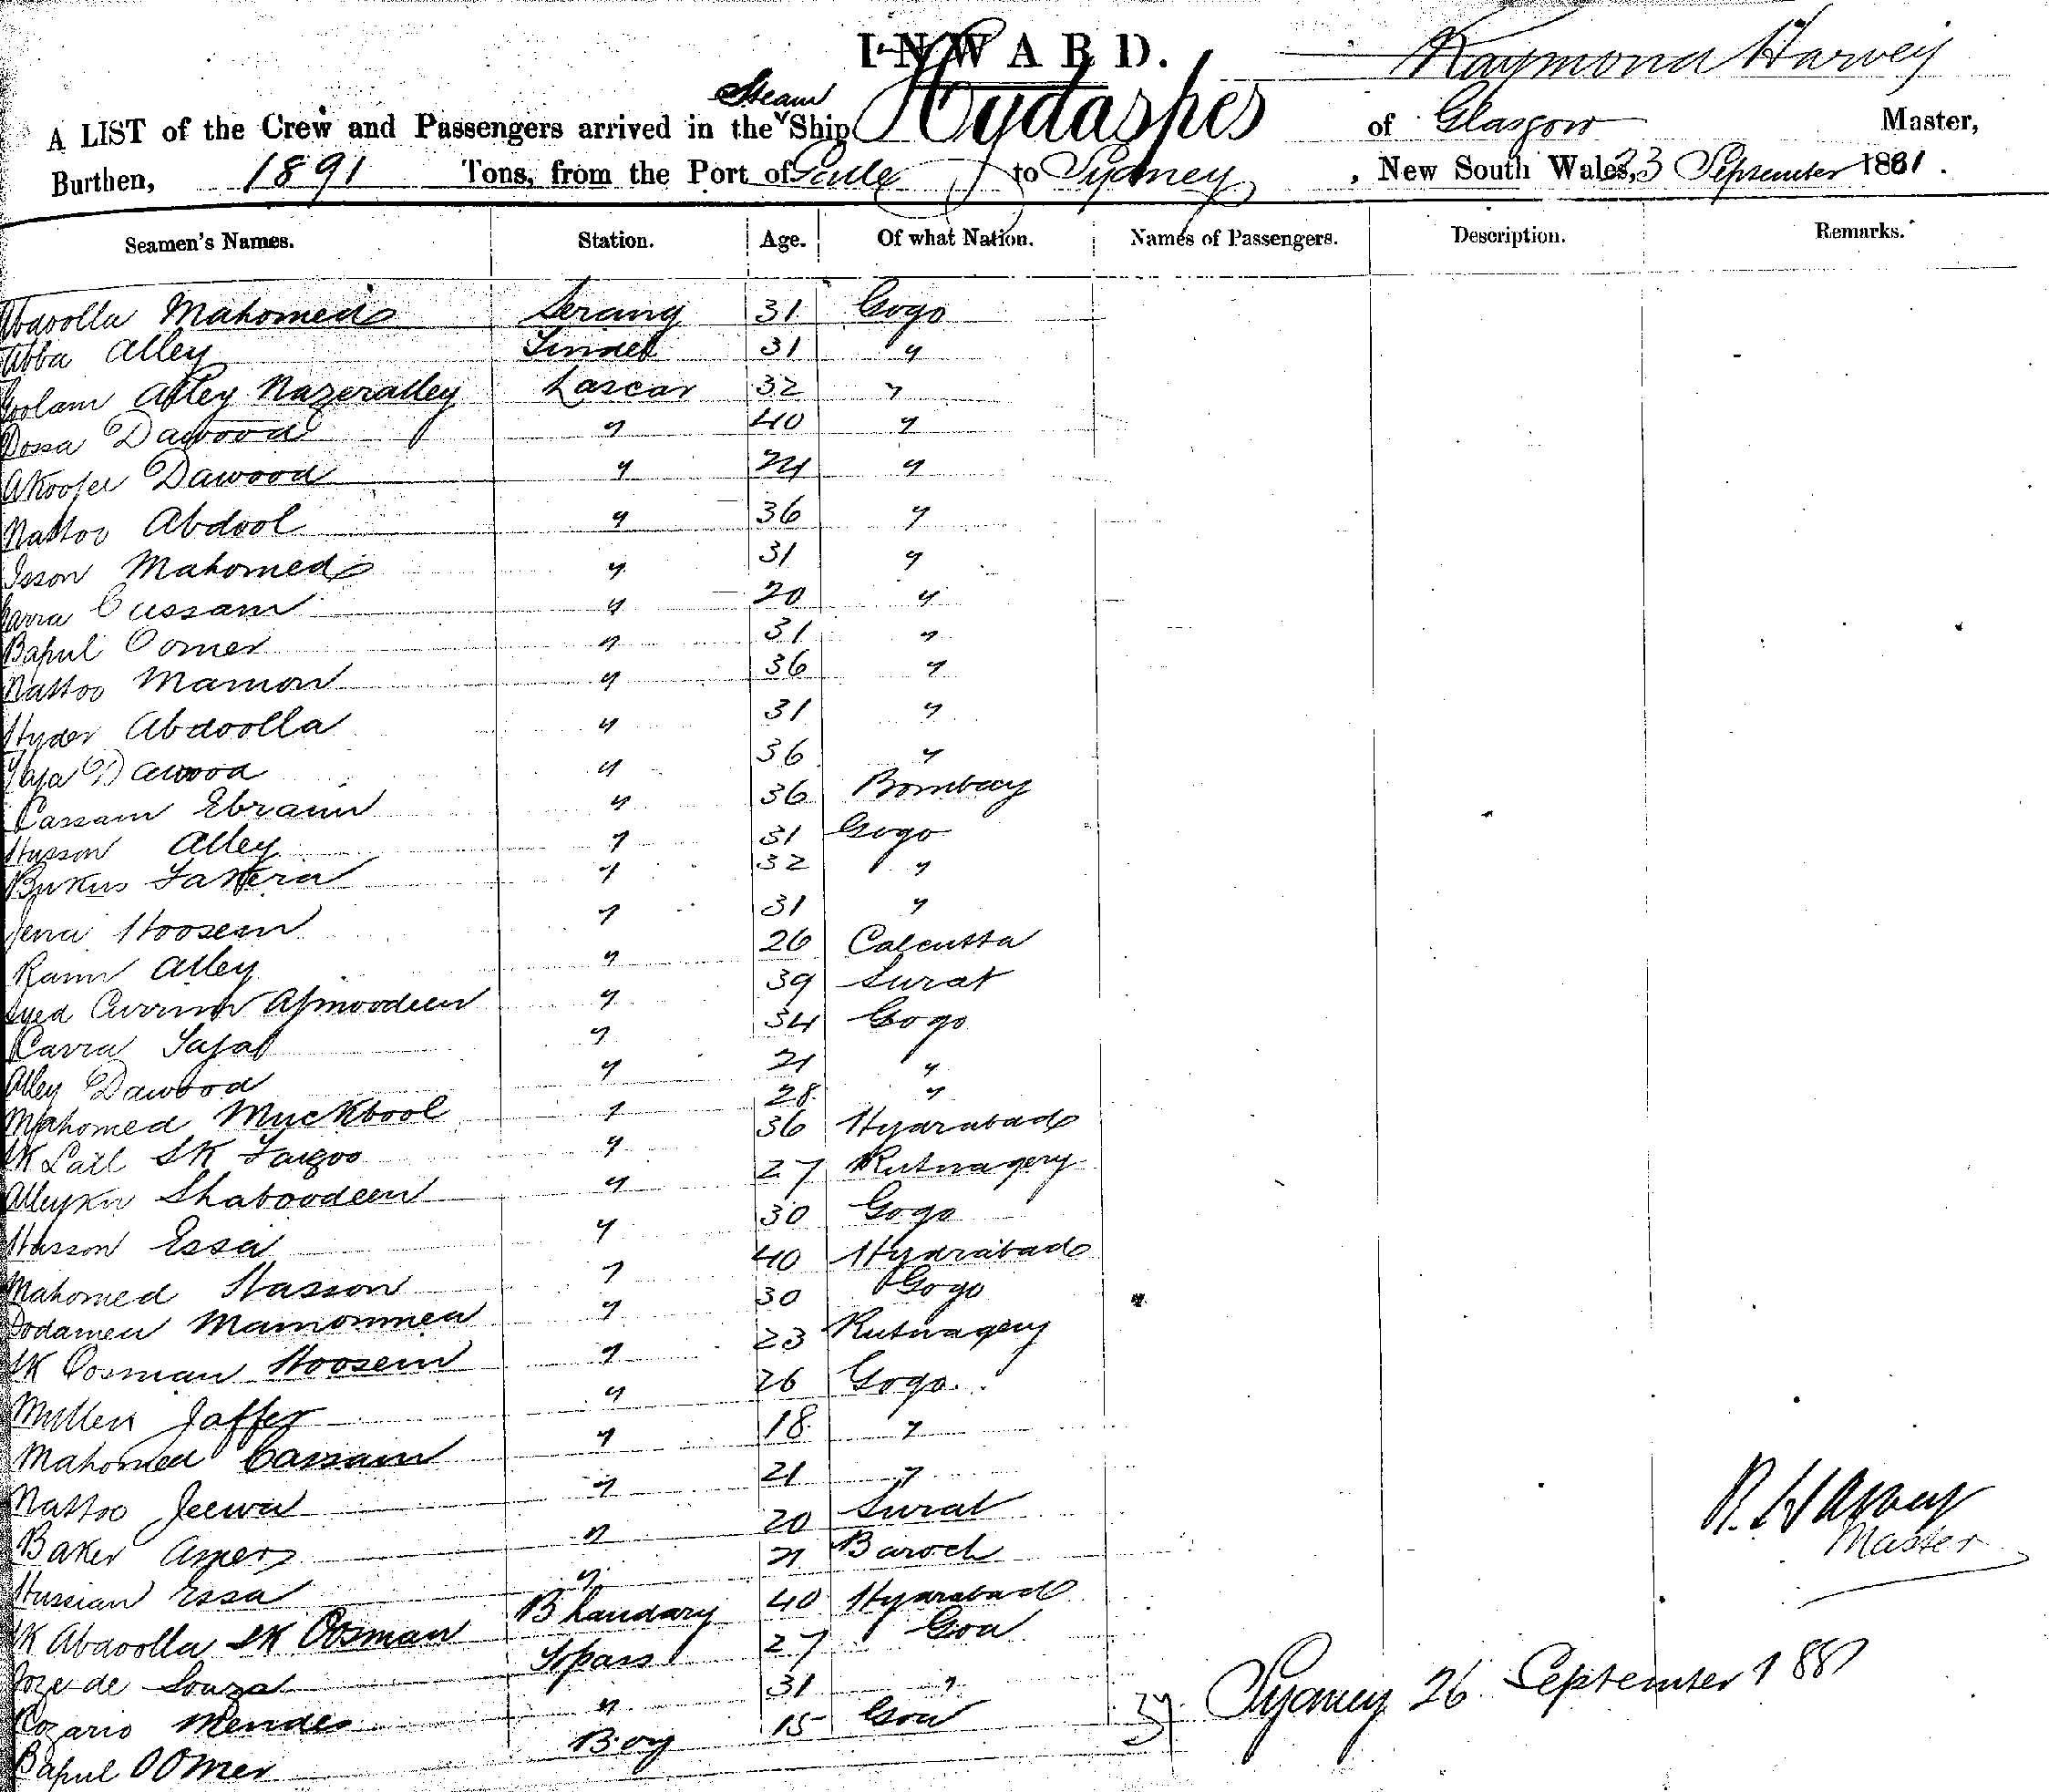 INWARD.
Raymond Harvey
A LIST of the Crew and Passengers arrived in the Steam Ship Hydaspes of Glasgow Master,
Burthen, 1891 Tons, from the Port of Galle to Sydney, New South Wales, 23 September 1881.
Seamen's Names. Station. Age. Of what Nation. Names of Passengers. Description. Remarks.
Abdoolla Mahomed Serang 31 Gogo
Abba Alley Tindel 31 "
Goolam Alley Nazeralley Lascar 32 "
Dossa Dawood " 40 "
Dawood " 24 "
Nattoo Abdool " 36 "
Isson Mahomed " 31 "
Cussam " 20 "
Baput Oomer " 31 "
Nattoo Mamon " 36 "
Hyder Abdoolla " 31 "
Dawood " 36 "
Cassam Ebraim " 36 Bombay
Husson Alley " 31 Gogo
Bukus Fakera " 32 "
Jena Hoosein " 31 "
Ram Alley " 26 Calcutta
Syed Currim Ajmoodeen " 39 Surat
Carra " 34 Gogo
Alley Dawood " 21 "
Mahomed Muckbool " 28 "
SK Lall SK " 36 Hydrabad
Shaboodeen " 27 Rutnagery
Hasson Essa " 30 Gogo
Mahomed Hasson " 40 Hydrabad
Dodamea Mamoomea " 30 Gogo
SK Oosman Hoosein " 23 Rutnagery
Jaffer " 26 Gogo
Mahomed Cassam " 18 "
Nattoo Jeewa " 21 "
Baker Amer " 20 Surat
Hussian Essa " 21 Baroch
SK Abdoolla SK Oosman Bhandary 40 Hydrabad
Joze de Souza Topass 27 Goa
Rozario Mendes " 31 "
Baput Oomer Boy 15 Goa
37
R. Harvey
Master
Sydney 26 September 1881